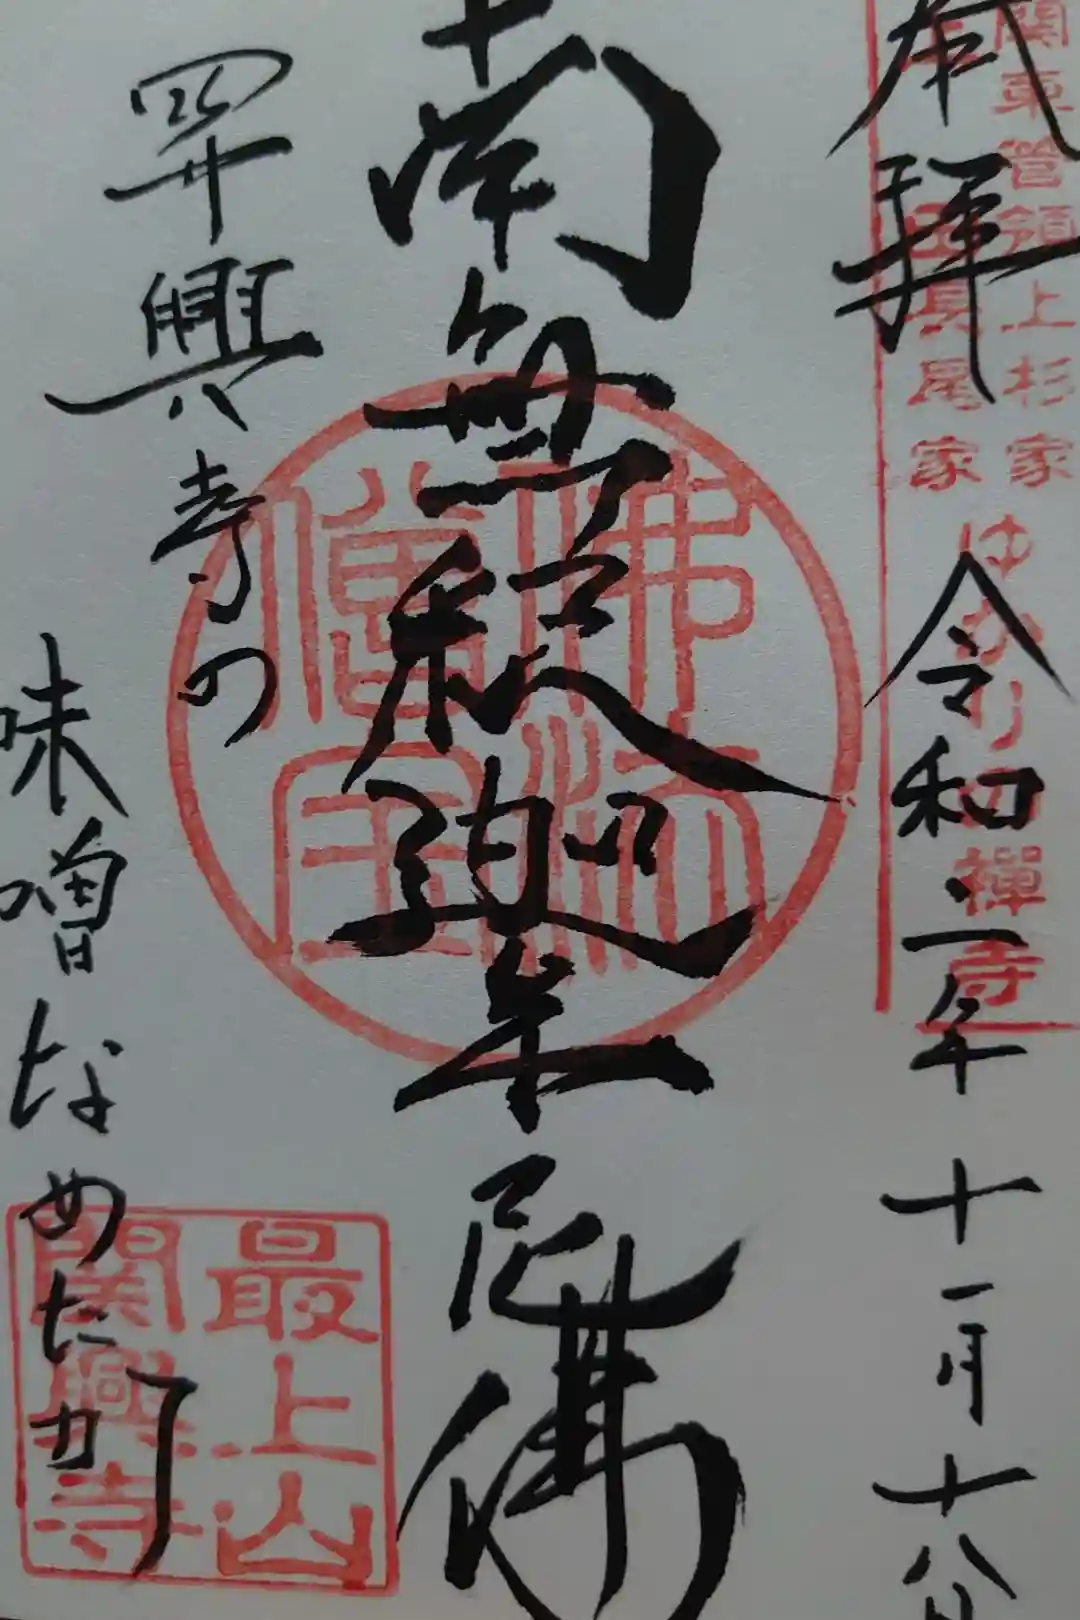 奉拝
令和二年十一月十八日
關東管領上杉家
長尾家
ゆかりの禅寺
南無釈迦牟尼佛
佛法僧宝
関興寺の
味噌なめたか
最上山
関興寺